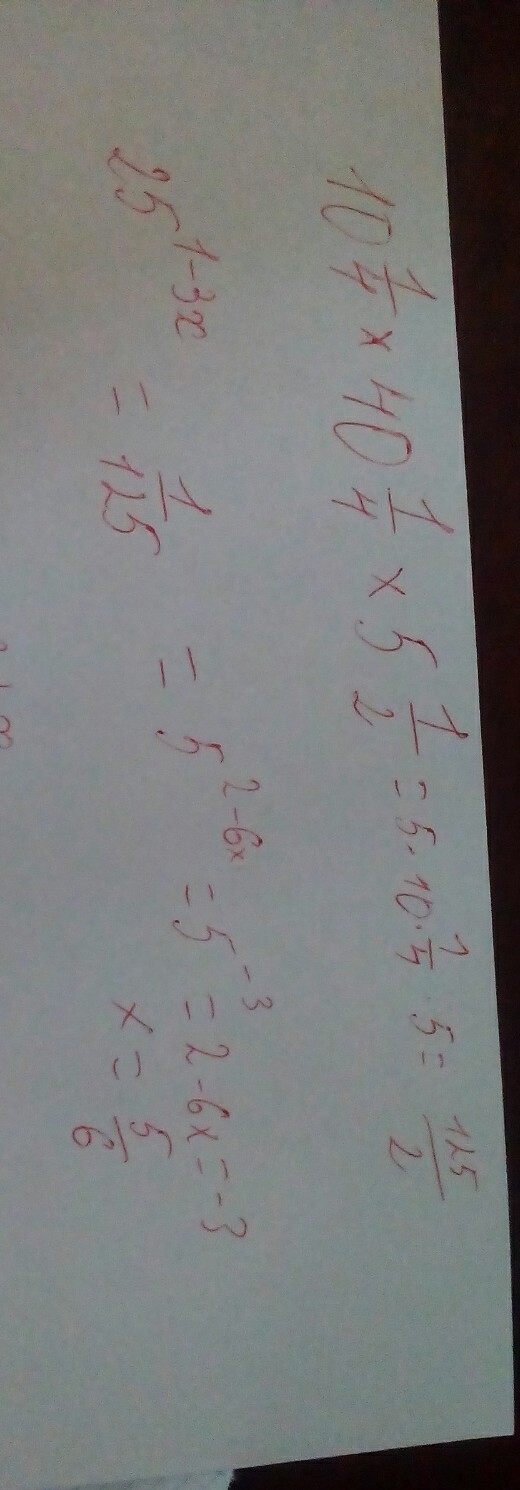 10 1/4 × 40 1/4 × 5 1/2 = 5·10·1/4·5 = 125/2
25^(1-3x) = 1/125 = 5^(2-6x) = 5^(-3) = 2-6x=-3
x = 5/6